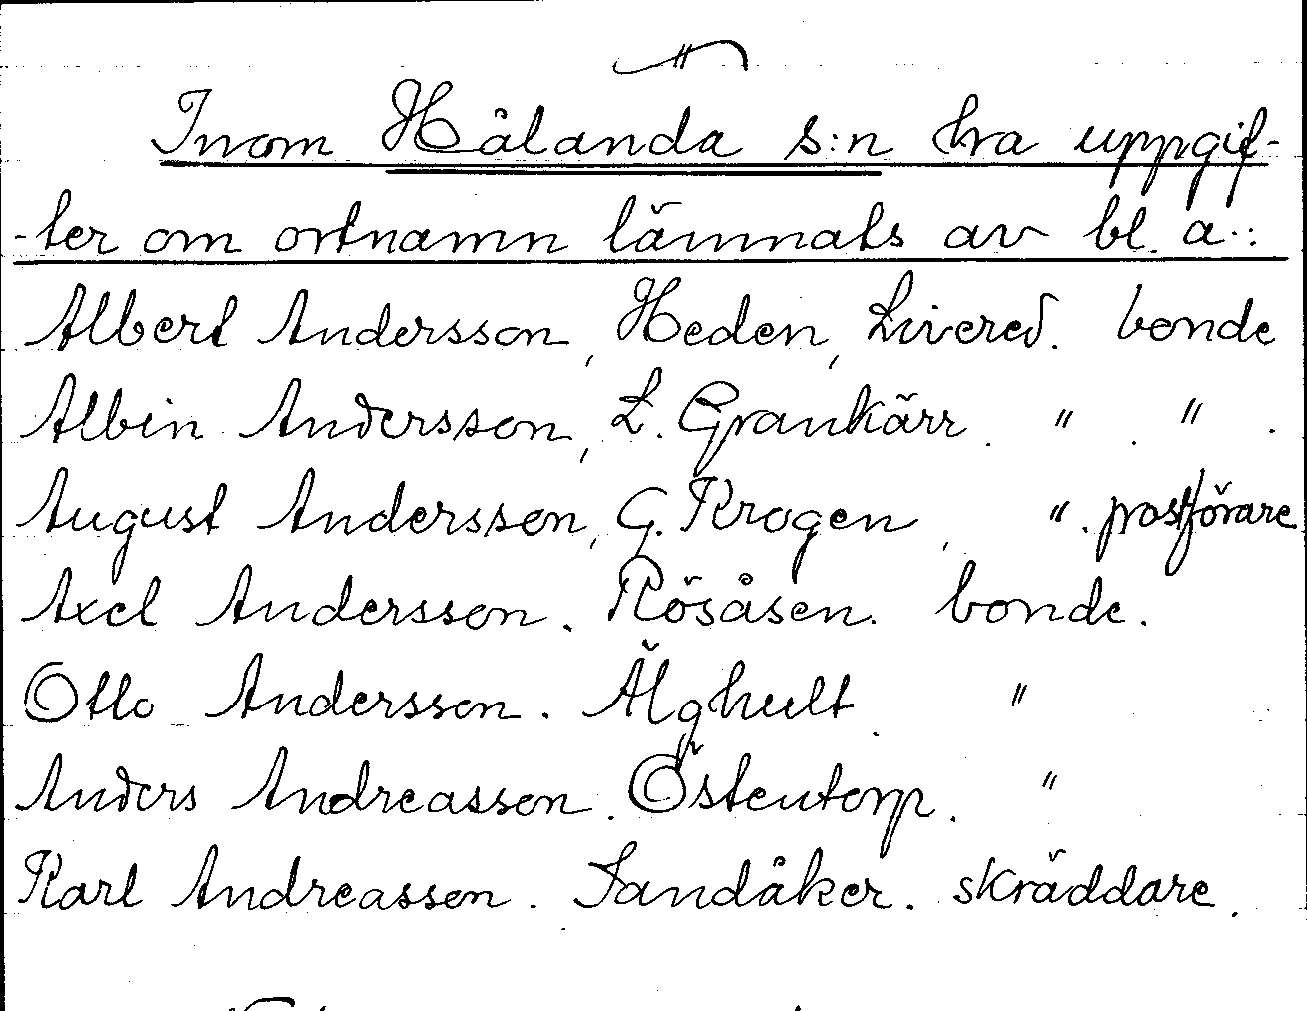 Inom Hålanda s:n ha uppgif-
-ter om ortnamn lämnats av bl. a.:
Albert Andersson, Heden, Livered. bonde
Albin Andersson, L. Grankärr. " . " .
August Andersson, G. Krogen, " . postförare
Axel Andersson. Rösåsen. bonde.
Otto Andersson. Älghult. "
Anders Andreasson. Östentorp. "
Karl Andreasson. Sandåker. skräddare.